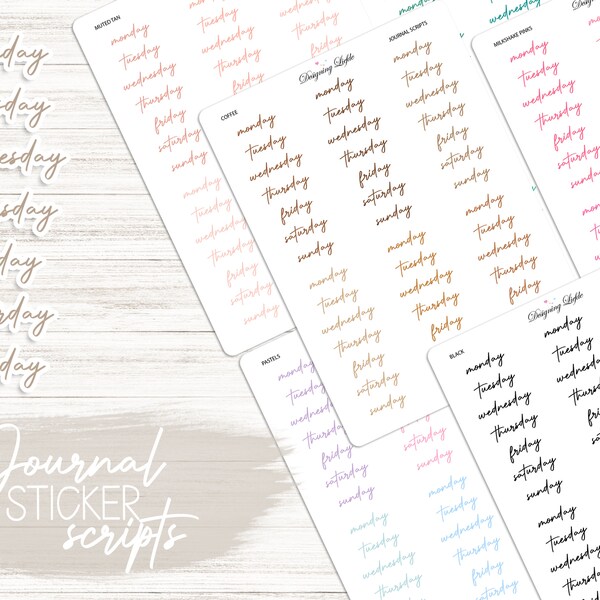 day
day
esday
sday
day
rday.
day
Journal
STICKER
scripts
MUTED TAN
monday
tuesday
wednesday
thursday
friday
saturday
sunday
monday
tuesday
wednesday
thursday
friday
saturday
sunday
COFFEE
Designing Liefde
JOURNAL SCRIPTS
monday
tuesday
wednesday
thursday
friday
saturday
sunday
monday
tuesday
wednesday
thursday
friday
saturday
sunday
monday
tuesday
wednesday
thursday
friday
saturday
sunday
monday
tuesday
wednesday
thursday
friday
saturday
sunday
monday
tuesday
wednesday
thursday
friday
monday
tuesday
wednesday
thursday
friday
MILKSHAKE PINKS
monday
tuesday
wednesday
thursday
friday
saturday
sunday
PASTELS
monday
tuesday
wednesday
thursday
friday
saturday
sunday
saturday
sunday
monday
tuesday
wednesday
thursday
monday
tuesday
wednesday
thursday
friday
BLACK
Designing Liefde
monday
tuesday
wednesday
thursday
friday
saturday
sunday
monday
tuesday
wednesday
thursday
friday
monday
tuesday